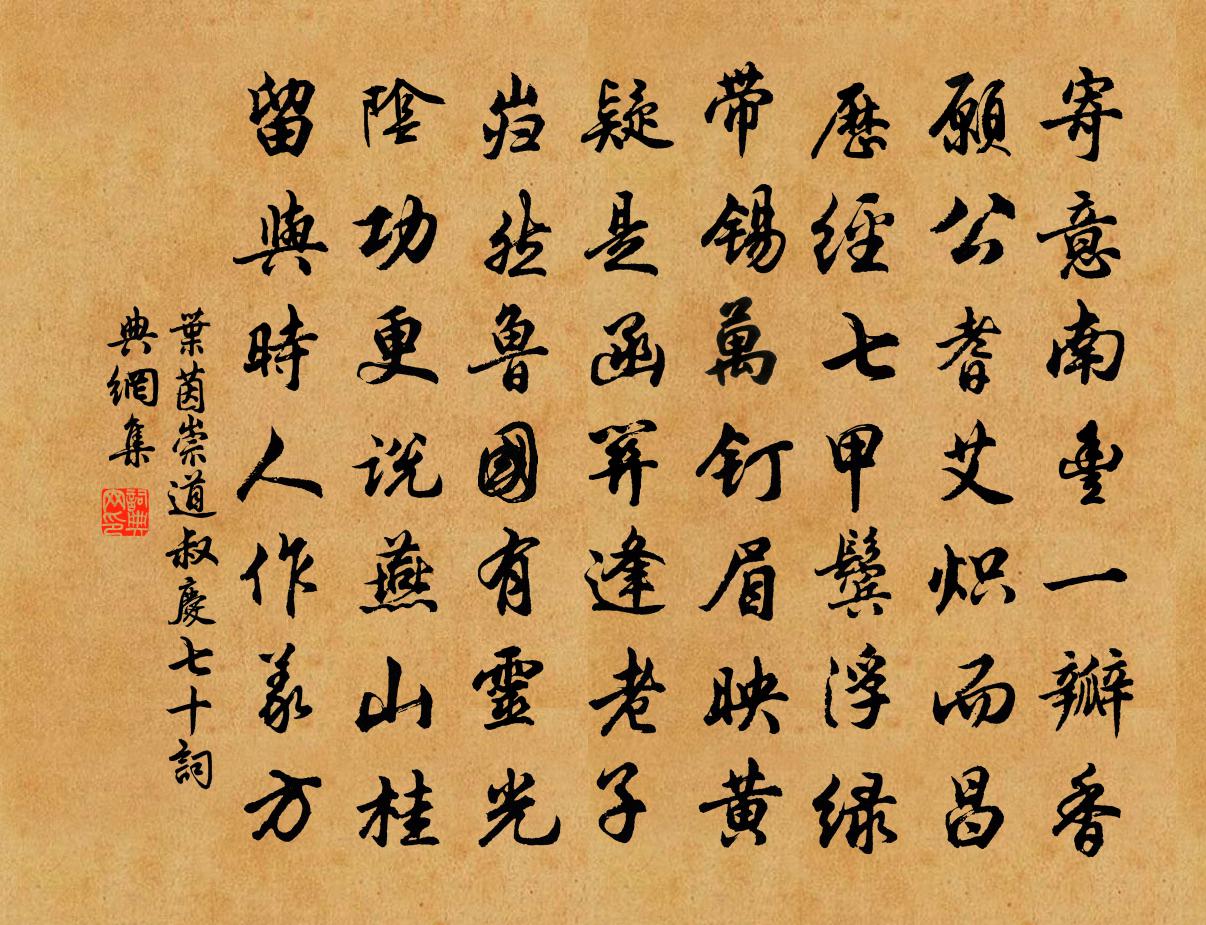 寄意南豐一瓣香
願公耆艾炽而昌
歷經七甲鬓浮緑
带錫萬釘眉映黄
疑是函關逢老子
岿然魯國有靈光
陰功更说燕山桂
留與時人作義方
葉茵崇道叔慶七十詞
典網集
詞典網印